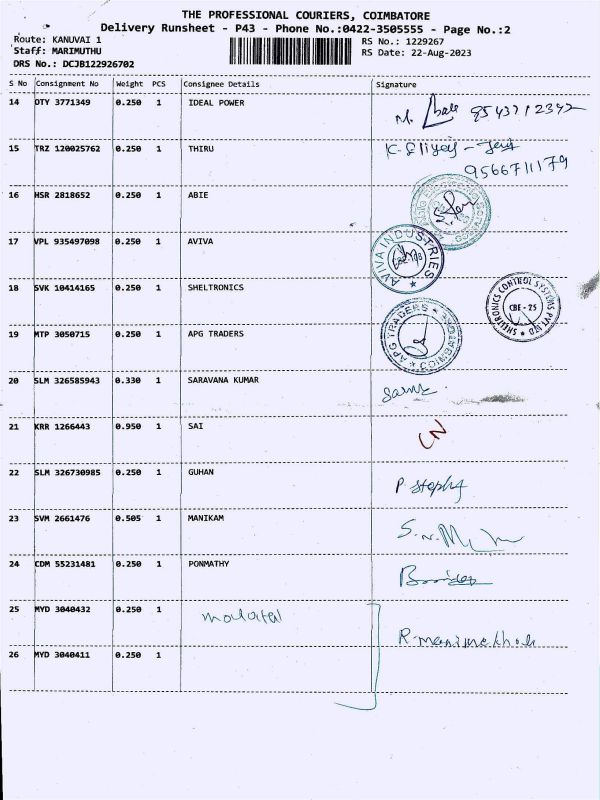 THE PROFESSIONAL COURIERS, COIMBATORE
Delivery Runsheet - P43 - Phone No.:0422-3505555 - Page No.:2
Route: KANUVAI 1
RS No.: 1229267
Staff: MARIMUTHU
RS Date: 22-Aug-2023
DRS No.: DCJB122926702
S No Consignment No Weight PCS Consignee Details Signature
14 OTY 3771349 0.250 1 IDEAL POWER
15 TRZ 120025762 0.250 1 THIRU
9566711179
16 HSR 2818652 0.250 1 ABIE
17 VPL 935497098 0.250 1 AVIVA
AVIVA INDUSTRIES
18 SVK 10414165 0.250 1 SHELTRONICS
SHELTRONICS CONTROL SYSTEMS PVT LTD
CBE - 25
19 MTP 3050715 0.250 1 APG TRADERS
APG TRADERS
20 SLM 326585943 0.330 1 SARAVANA KUMAR
21 KRR 1266443 0.950 1 SAI
LN
22 SLM 326730985 0.250 1 GUHAN
P Stephy
23 SVM 2661476 0.505 1 MANIKAM
24 CDM 55231481 0.250 1 PONMATHY
25 MYD 3040432 0.250 1
R. manimekhala
26 MYD 3040411 0.250 1